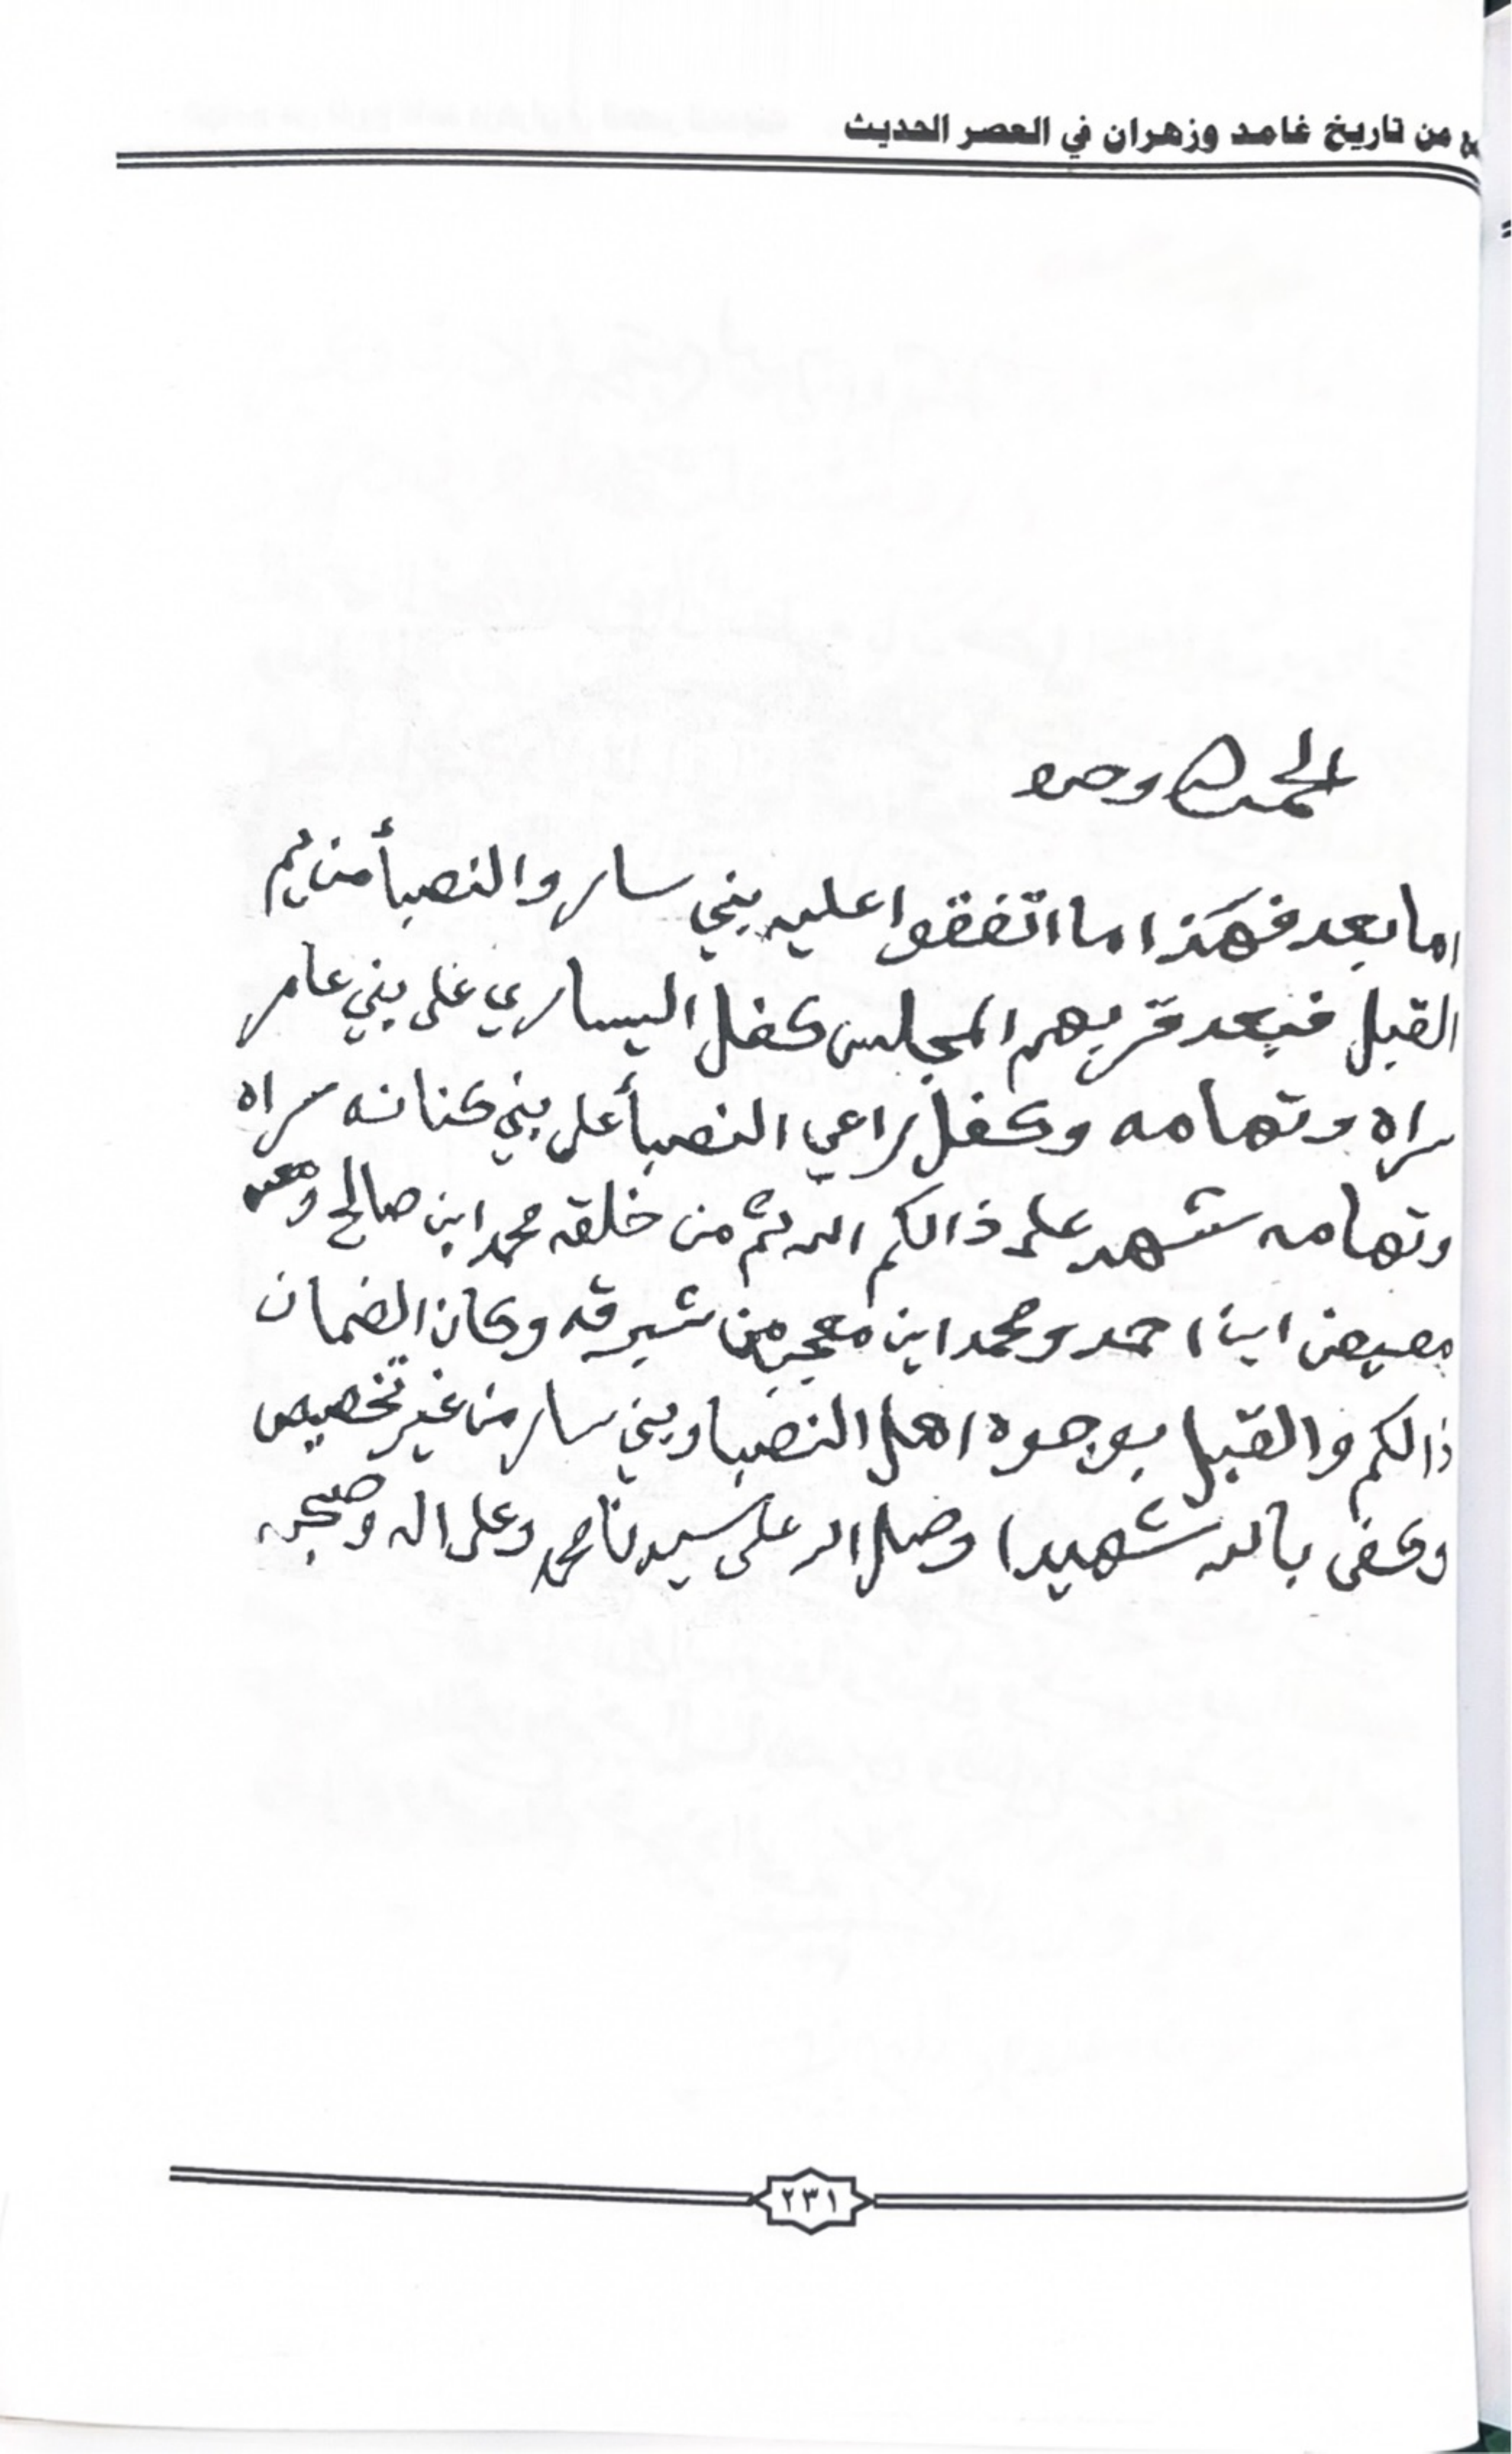 من تاريخ غامد وزهران في العصر الحديث
الحمد لله وحده
اما بعد فهذا ما اتفقوا عليه بني سار والنصبأ من يم
القبل فبعد قربهم المجلس كفل اليساري على بني عامر
سراه وتهامه وكفل راعي النصبأ على بني كنانه سراه
وتهامه شهد على ذالكم الله ثم من خلقه محمد ابن صالح
معيض ابن احمد ومحمد ابن معجب من شبرقه وكان الضمان
ذالكم والقبل بوجوه اهل النصبا وبني سار من غير تخصيص
وكفى بالله شهيدا وصلى الله على سيدنا محمد وعلى اله وصحبه
٢٣١